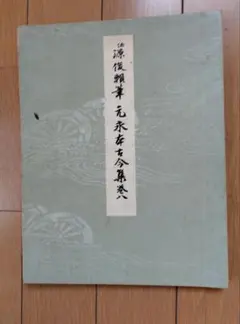 伝源俊頼筆 元永本古今集 巻八